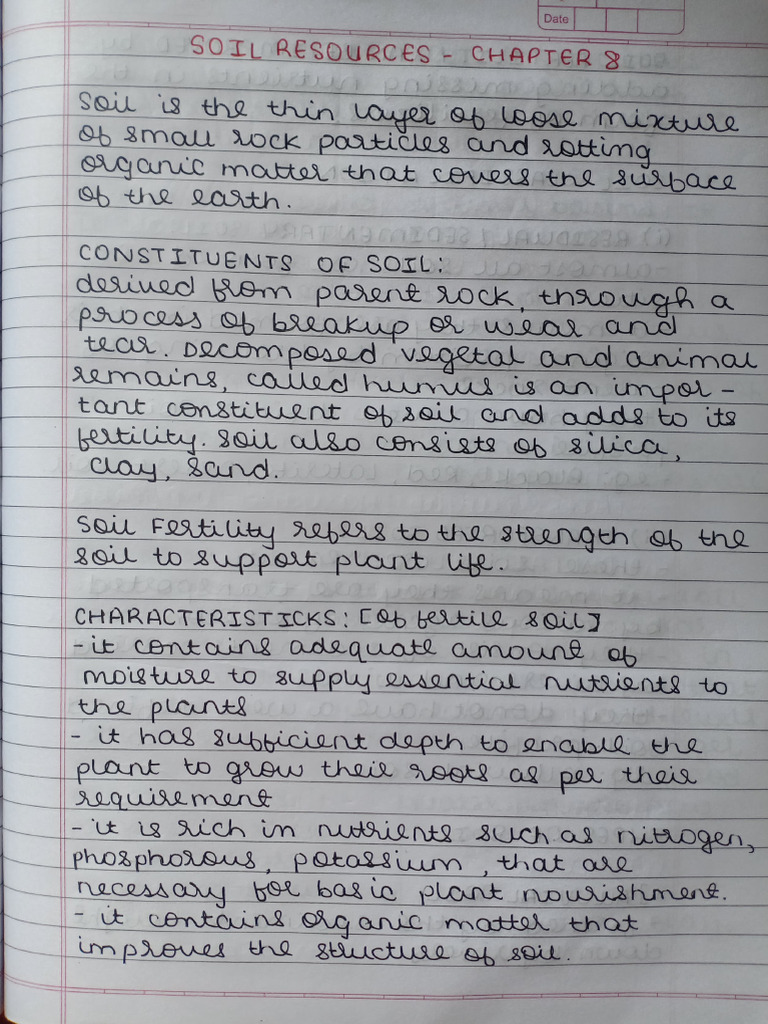 Date
SOIL RESOURCES - CHAPTER 8
Soil is the thin layer of loose mixture
of small rock particles and rotting
organic matter that covers the surface
of the earth.
CONSTITUENTS OF SOIL:
derived from parent rock, through a
process of breakup or wear and
tear. Decomposed vegetal and animal
remains, called humus is an impor -
tant constituent of soil and adds to its
fertility. Soil also consists of silica,
clay, sand.
Soil Fertility refers to the strength of the
soil to support plant life.
CHARACTERISTICKS: [Of fertile soil]
- it contains adequate amount of
moisture to supply essential nutrients to
the plants
- it has sufficient depth to enable the
plant to grow their roots as per their
requirement
- it is rich in nutrients such as nitrogen,
phosphorous, potassium, that are
necessary for basic plant nourishment.
- it contains organic matter that
improves the structure of soil.